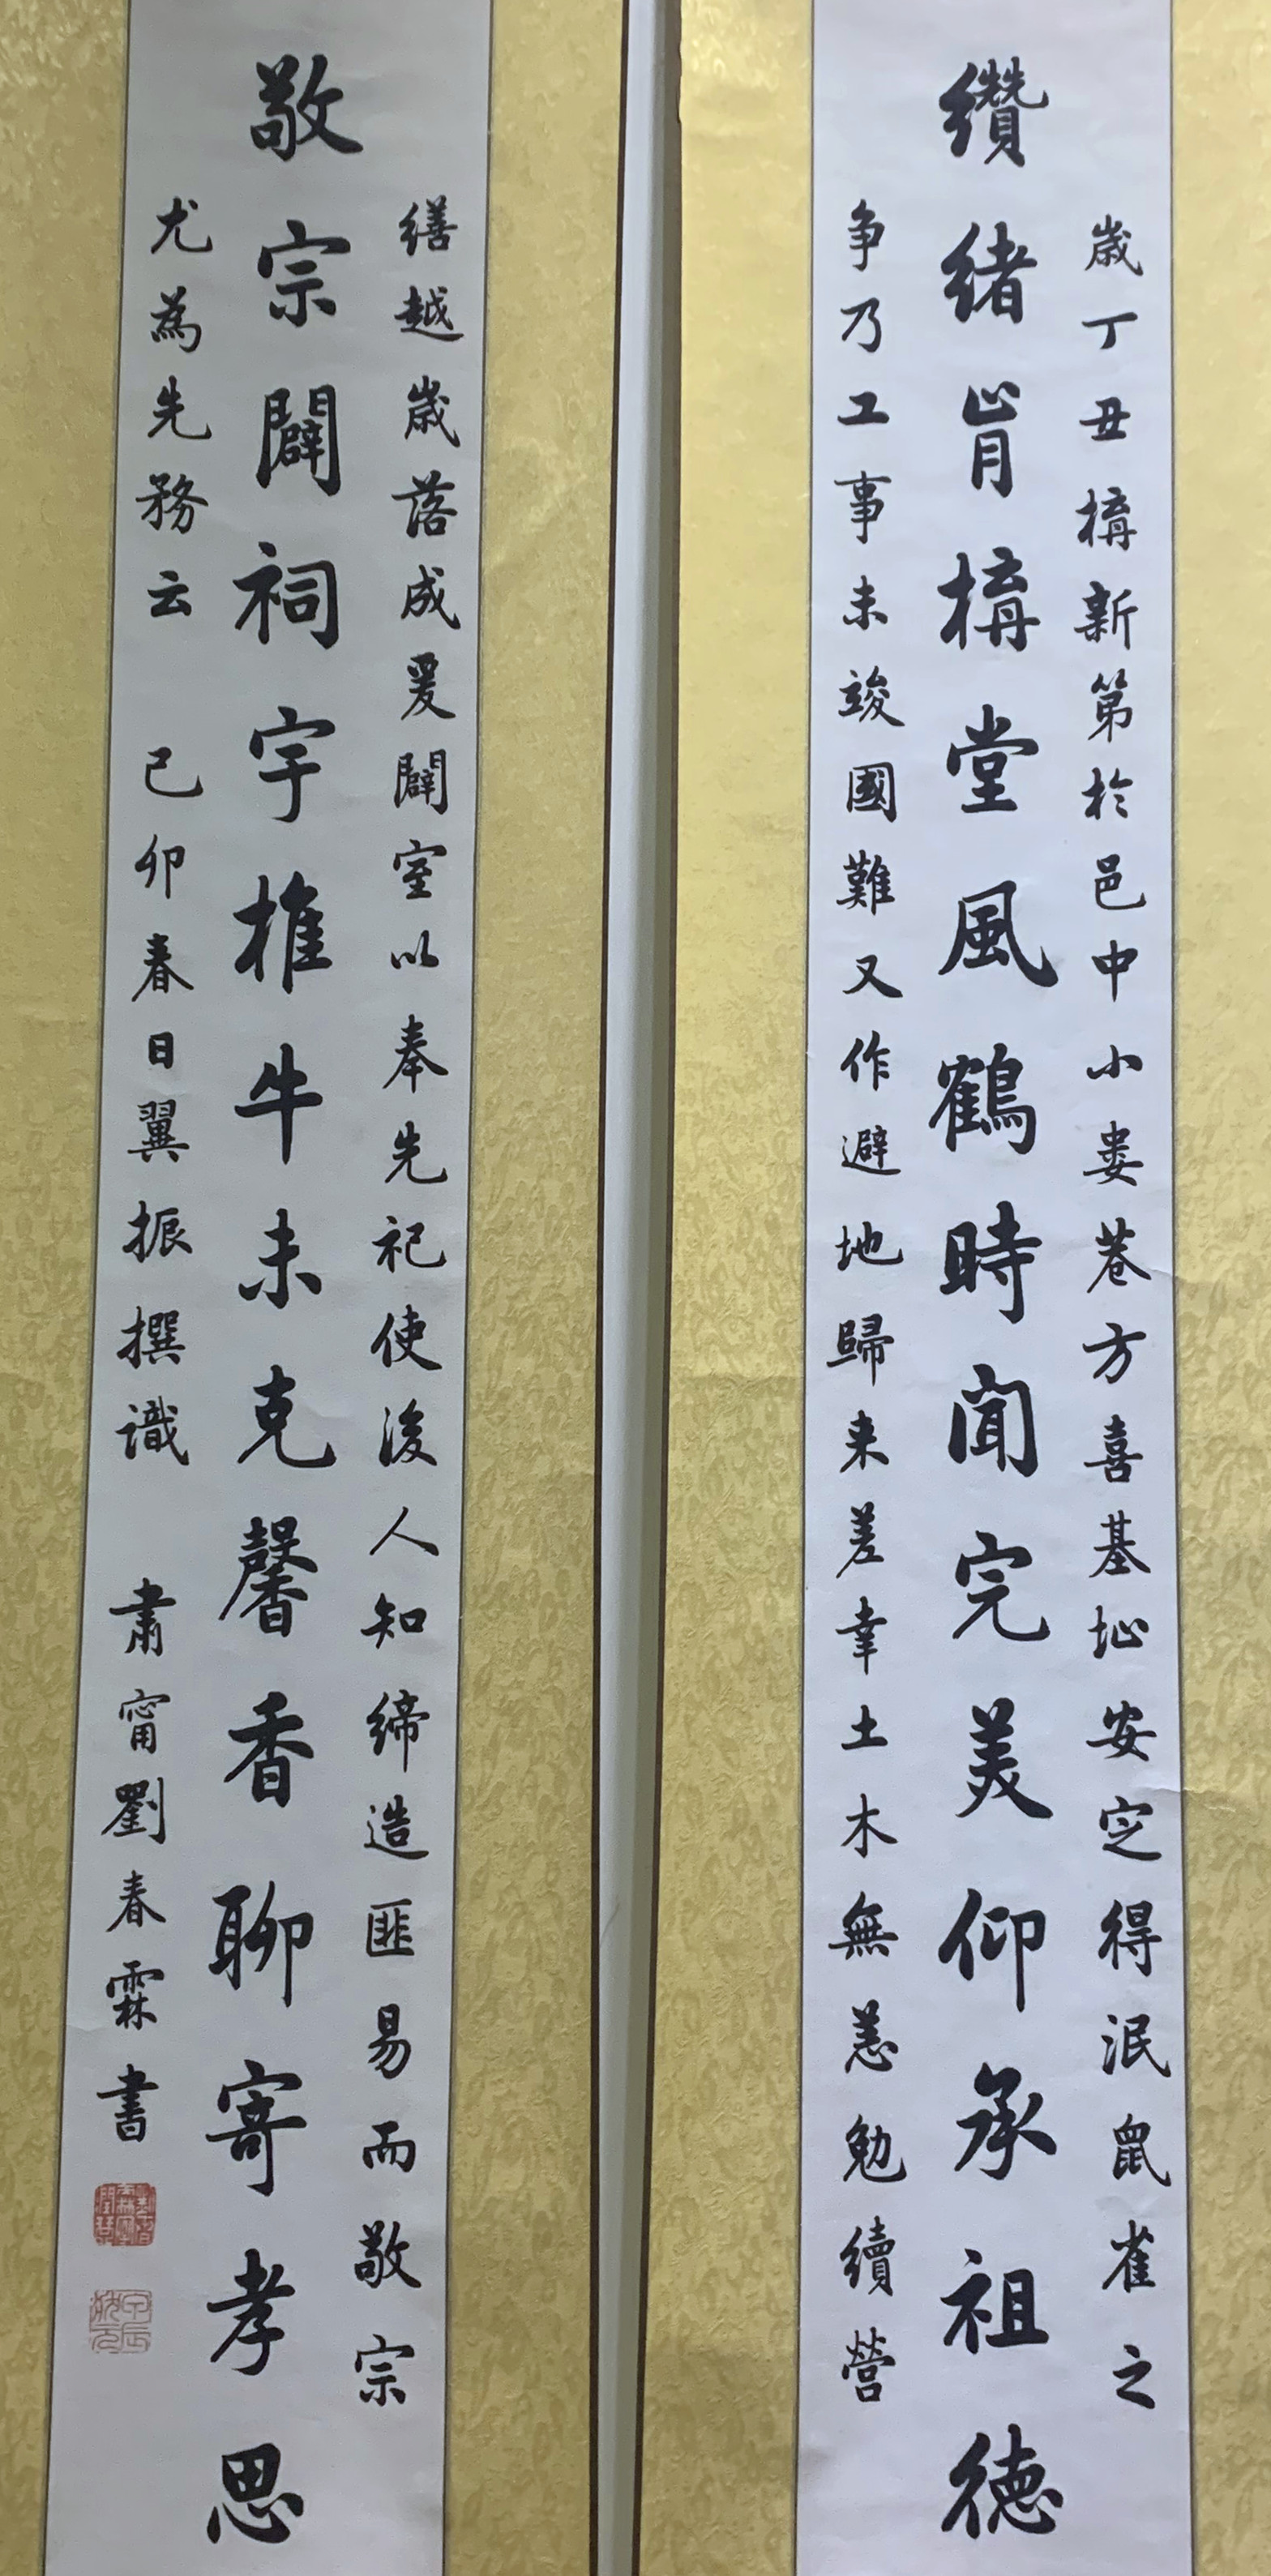 歲丁丑構新第於邑中小婁巷方喜基址安定得泯鼠雀之
纘緒肯構堂風鶴時聞完美仰承祖德
争乃工事未竣國難又作避地歸来差幸土木無恙勉續營
繕越歲落成爰闢室以奉先祀使後人知締造匪易而敬宗
敬宗闢祠宇椎牛未克馨香聊寄孝思
尤為先務云 己卯春日翼振撰識 肅甯劉春霖書
甲辰狀元